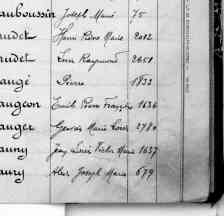 auboussin Joseph Marie 75
audet Henri Pierre Marie 2012
audet Louis Raymond 2451
augé Pierre 1833
augeon Emile Pierre François 1636
auger Georges Marie Louis 2780
auny Jean Louis Victor Marie 1637
aury Alex Joseph Marie 679